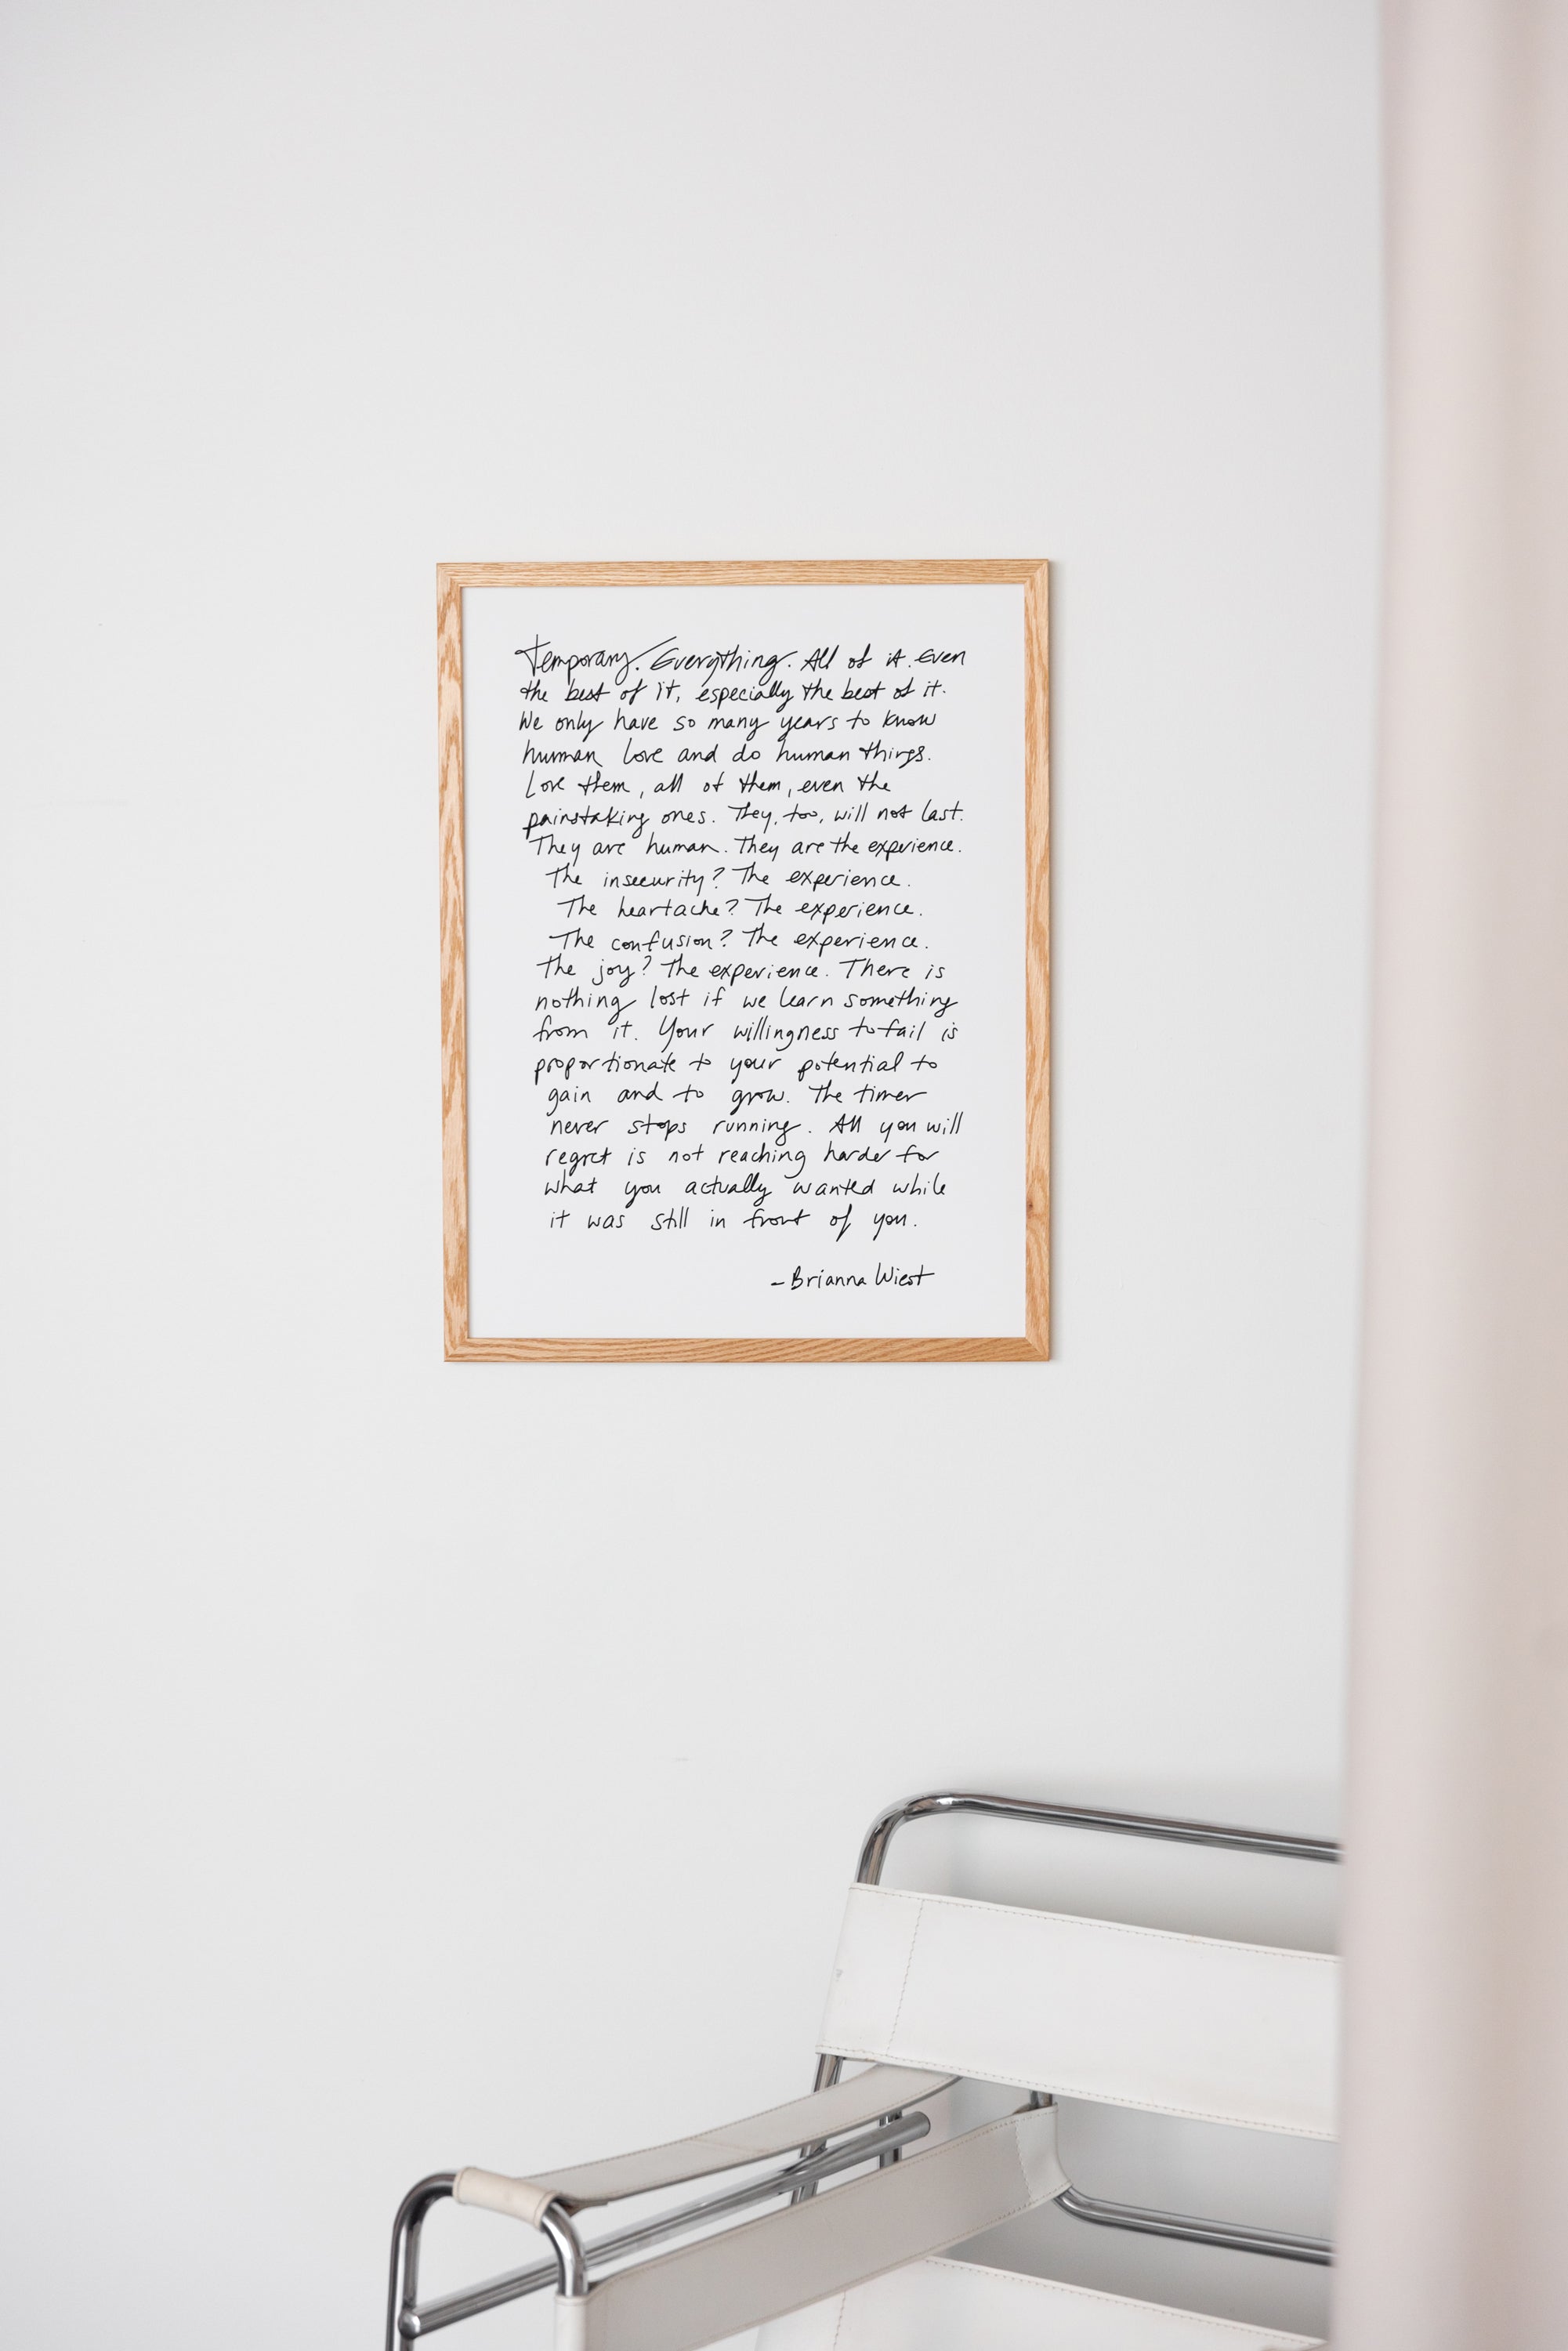 Temporary. Everything. All of it. Even
the best of it, especially the best of it.
We only have so many years to know
human love and do human things.
Love them, all of them, even the
painstaking ones. They, too, will not last.
They are human. They are the experience.
The insecurity? The experience.
The heartache? The experience.
The confusion? The experience.
The joy? The experience. There is
nothing lost if we learn something
from it. Your willingness to fail is
proportionate to your potential to
gain and to grow. The timer
never stops running. All you will
regret is not reaching harder for
what you actually wanted while
it was still in front of you.
- Brianna Wiest